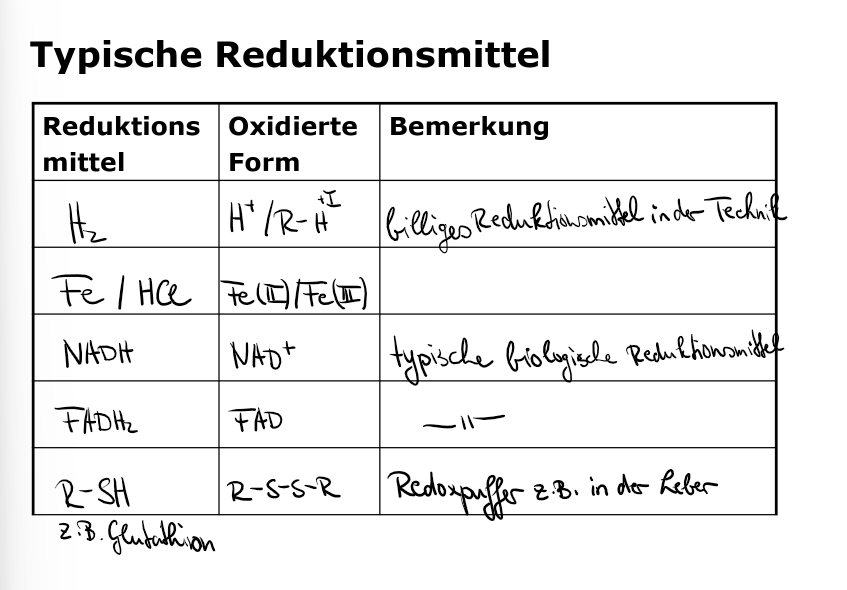 Typische Reduktionsmittel
Reduktions Oxidierte Bemerkung
mittel Form
H₂ H⁺/R-H⁺ᴵ billiges Reduktionsmittel in der Technik
Fe / HCl Fe(II)/Fe(III)
NADH NAD⁺ typische biologische Reduktionsmittel
FADH₂ FAD —"—
R-SH R-S-S-R Redoxpuffer z.B. in der Leber
z.B. Glutathion